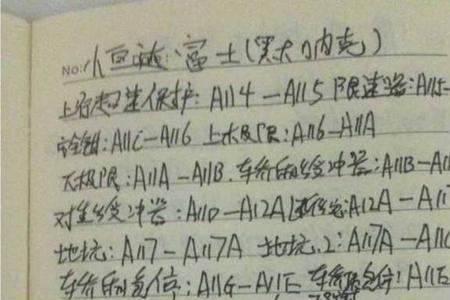 No: 小巨菰:富士(默纳克)
上行超速保护:A114-A115 限速器:A115-
安全钳:A11C-A116 上极限:A116-A11A
下极限:A11A-A11B.车轿缓冲器:A11B-A11
对重缓冲器:A11D-A12A :A12A-A11
地坑:A117-A117A 地坑.2:A117A-A11C
车轿 急停:A11G-A11E 车轿 急停:A11E